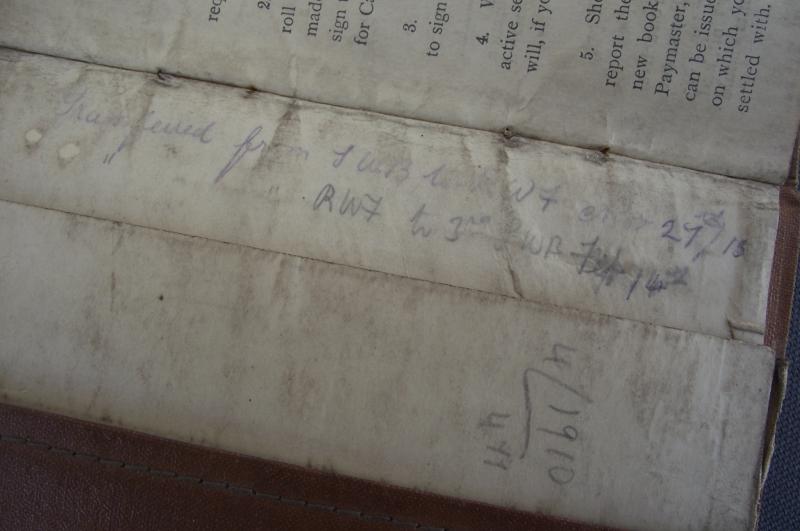 req
2.
roll
made
sign
for Ca
3.
to sign
4. W
active se
will, if yo
5. Sho
report the
new book
Paymaster,
can be issue
on which yo
settled with.
Transferred from S WB to RWF on 27
" RWF to 3rd SWB
4/1910